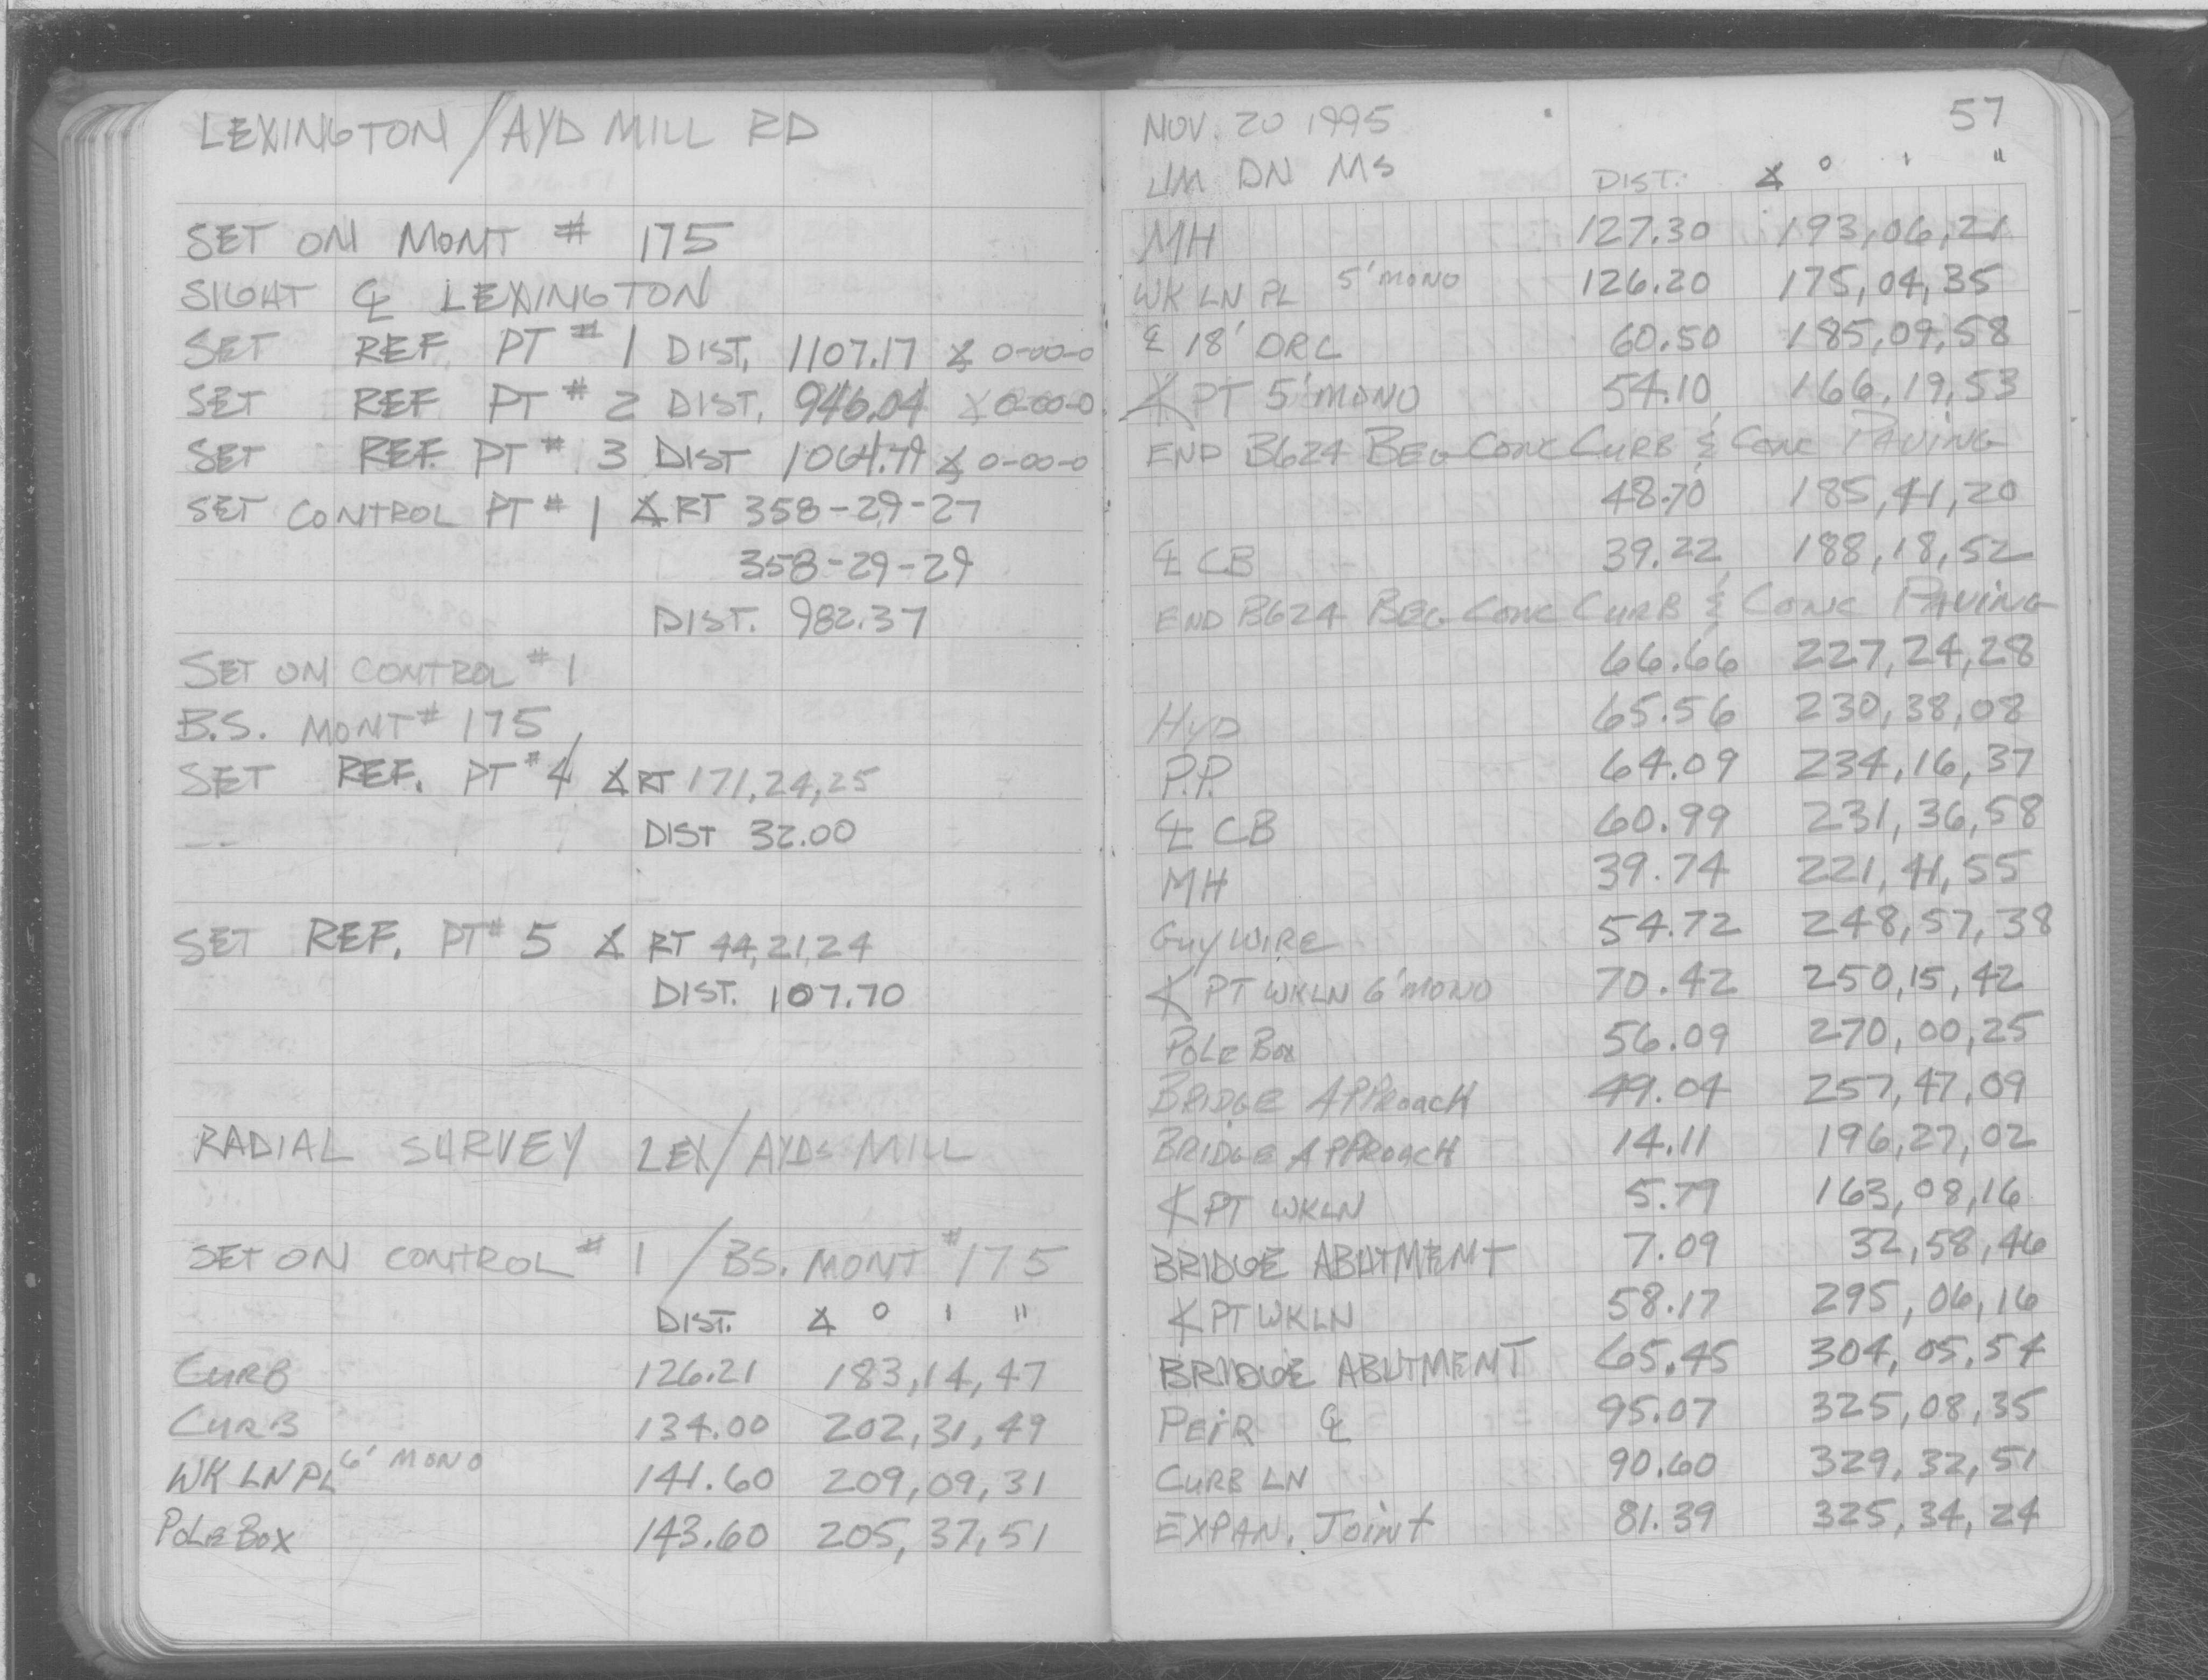 LEXINGTON/AYD MILL RD
SET ON MONT # 175
SIGHT ℄ LEXINGTON
SET REF. PT # 1 DIST. 1107.17 ∡ 0-00-0
SET REF PT # 2 DIST. 946.04 ∡ 0-00-0
SET REF. PT # 3 DIST 1064.79 ∡ 0-00-0
SET CONTROL PT # 1 ∡ RT 358-29-27
358-29-29
DIST. 982.37
SET ON CONTROL # 1
B.S. MONT # 175
SET REF. PT # 4 ∡ RT 171,24,25
DIST 32.00
SET REF. PT # 5 ∡ RT 44,21,24
DIST. 107.70
RADIAL SURVEY LEX/AYDS MILL
SET ON CONTROL # 1 / BS. MONT # 175
DIST. ∡ ° ' "
CURB 126.21 183,14,47
CURB 134.00 202,31,49
WK LN PL 6' MONO 141.60 209,09,31
POLE BOX 143.60 205,37,51
NOV. 20 1995 57
DN MS DIST. ∡ ° ' "
MH 127.30 193,06,21
WK LN PL 5' MONO 126.20 175,04,35
℄ 18' 60.50 185,09,58
∡ PT 5' MONO 54.10 166,19,53
END B624 BEG CONC CURB & CONC PAVING
48.70 185,41,20
℄ CB 39.22 188,18,52
END B624 BEG CONC CURB & CONC PAVING
66.66 227,24,28
HYD 65.56 230,38,08
P.P. 64.09 234,16,37
℄ CB 60.99 231,36,58
MH 39.74 221,41,55
GUY WIRE 54.72 248,57,38
∡ PT WKLN 6' MONO 70.42 250,15,42
POLE BOX 56.09 270,00,25
BRIDGE APPROACH 49.04 257,47,09
BRIDGE APPROACH 14.11 196,27,02
∡ PT WKLN 5.79 163,08,16
BRIDGE ABUTMENT 7.09 32,58,46
∡ PT WKLN 58.17 295,06,16
BRIDGE ABUTMENT 65.45 304,05,54
PEIR ℄ 95.07 325,08,35
CURB LN 90.60 329,32,51
EXPAN. JOINT 81.39 325,34,24